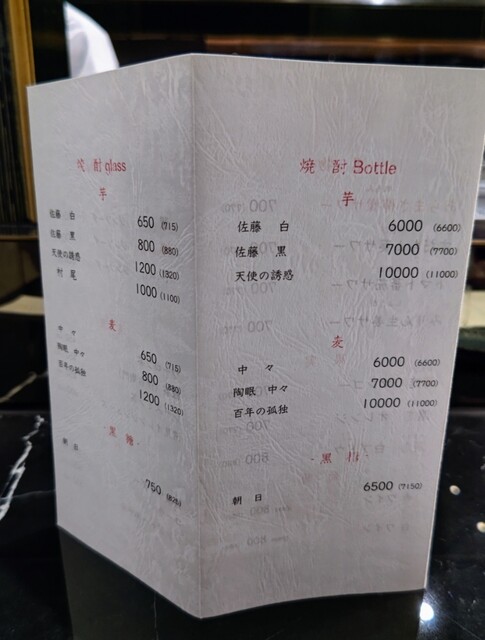 焼酎 glass
芋
佐藤 白 650 (715)
佐藤 黒 800 (880)
天使の誘惑 1200 (1320)
村尾 1000 (1100)
麦
中々 650 (715)
陶眠 中々 800 (880)
百年の孤独 1200 (1320)
黒糖
朝日 750 (825)
焼酎 Bottle
芋
佐藤 白 6000 (6600)
佐藤 黒 7000 (7700)
天使の誘惑 10000 (11000)
麦
中々 6000 (6600)
陶眠 中々 7000 (7700)
百年の孤独 10000 (11000)
黒糖
朝日 6500 (7150)